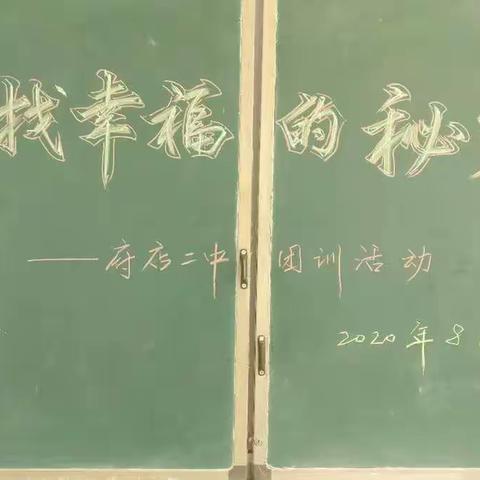 找幸福的秘
——府店二中团训活动
2020年8